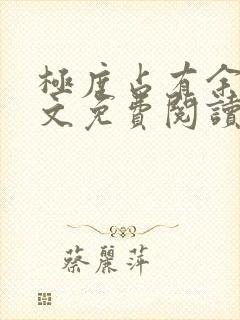 極度占有余
文免費閱讀
蔡麗萍